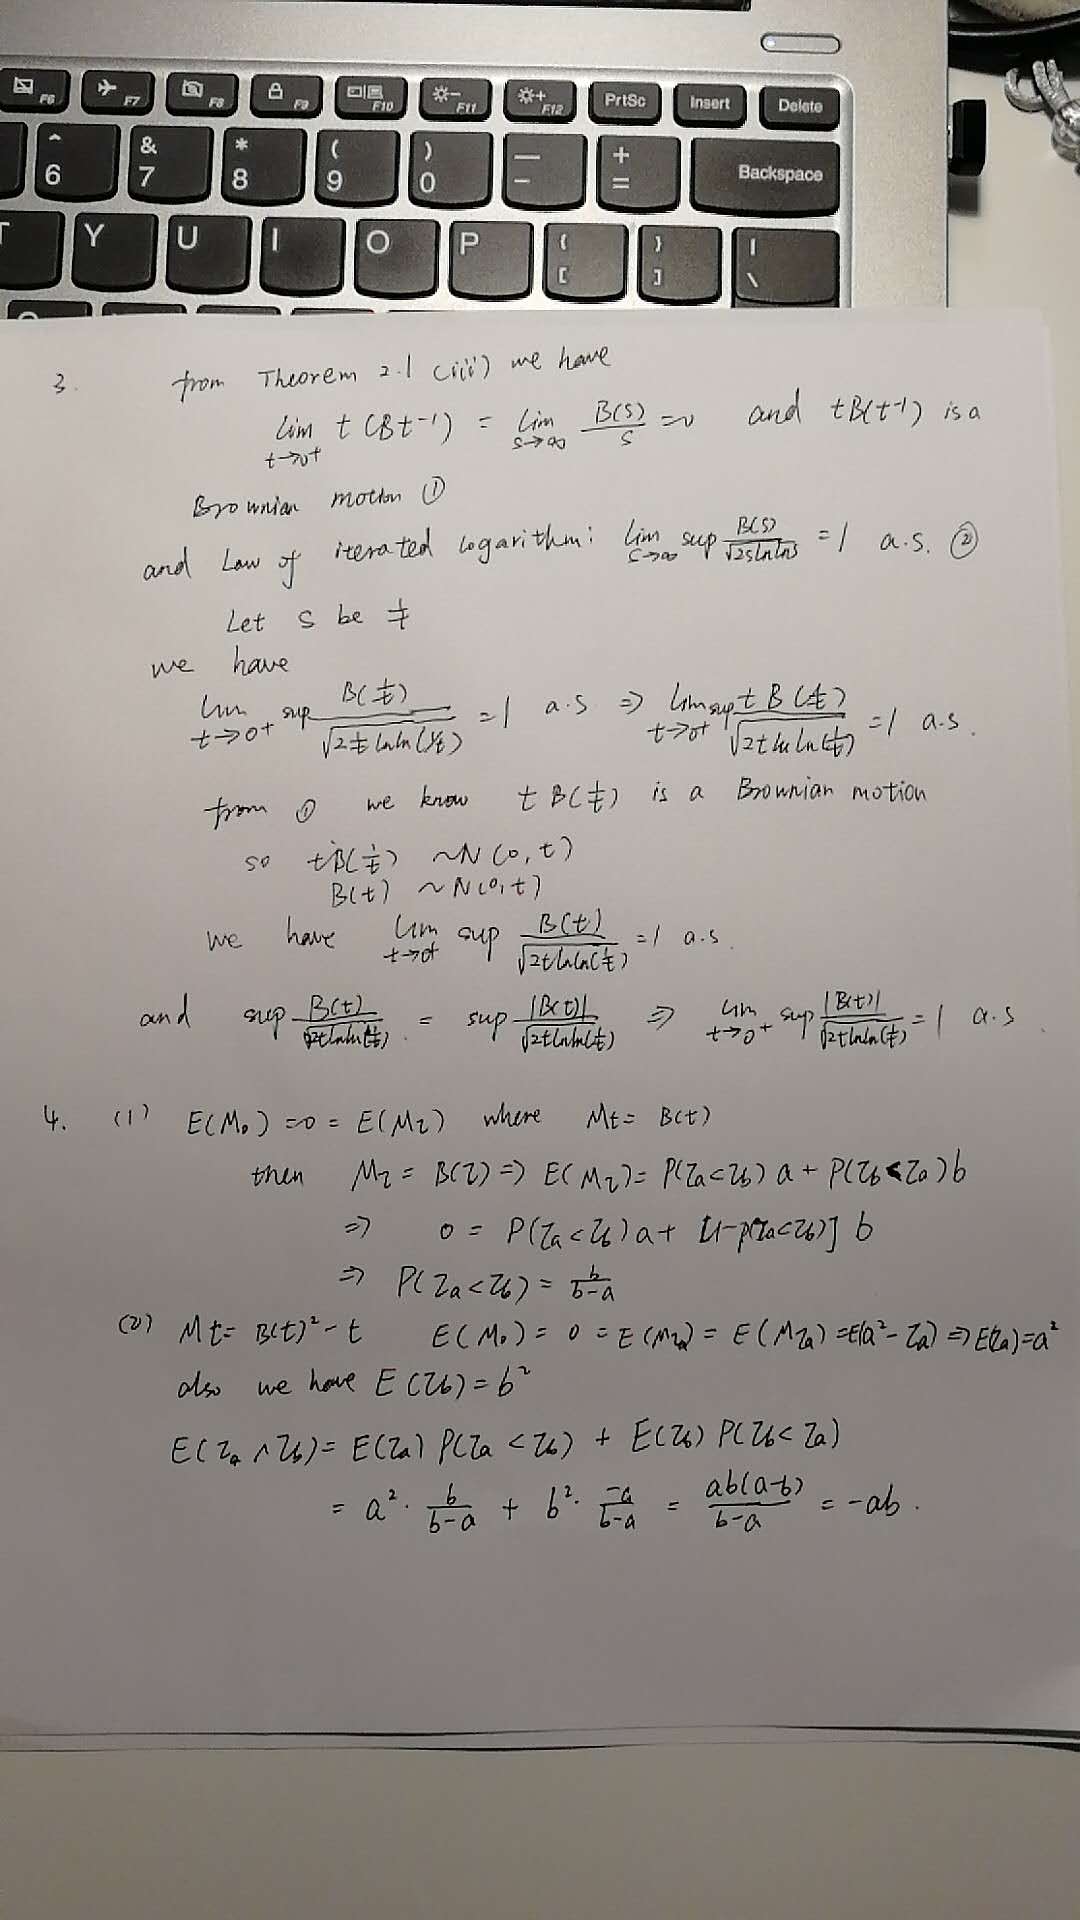 F6 F7 F8 F9 F10 F11 F12 PrtSc Insert Delete
^ & * ( ) — +
6 7 8 9 0 - = Backspace
T Y U I O P { } |
[ ] \
3. from Theorem 2.1 (iii) we have
lim t→0+ t(Bt⁻¹) = lim s→∞ B(s)/s = 0 and tB(t⁻¹) is a
Brownian motion ①
and Law of iterated logarithm: lim s→∞ sup B(s)/√2slnlns = 1 a.s. ②
Let s be 1/t
we have
lim t→0+ sup B(1/t)/√2 1/t lnln(1/t) = 1 a.s ⇒ lim sup t→0+ t B(1/t)/√2t ln ln(1/t) = 1 a.s.
from ① we know t B(1/t) is a Brownian motion
so tB(1/t) ~N(0,t)
B(t) ~N(0,t)
we have lim t→0+ sup B(t)/√2tlnln(1/t) = 1 a.s.
and sup B(t)/√2tlnln(1/t) = sup |B(t)|/√2tlnln(1/t) ⇒ lim t→0+ sup |B(t)|/√2tlnln(1/t) = 1 a.s.
4. (1) E(M₀) = 0 = E(Mτ) where Mt = B(t)
then Mτ = B(τ) ⇒ E(Mτ) = P(τa<τb) a + P(τb<τa) b
⇒ 0 = P(τa<τb) a + [1-P(τa<τb)] b
⇒ P(τa<τb) = b/b-a
(2) Mt = B(t)² - t E(M₀) = 0 = E(Mτa) = E(Mτa) = E(a² - τa) ⇒ E(τa) = a²
also we have E(τb) = b²
E(τa ∧ τb) = E(τa) P(τa < τb) + E(τb) P(τb < τa)
= a² · b/b-a + b² · -a/b-a = ab(a-b)/b-a = -ab.